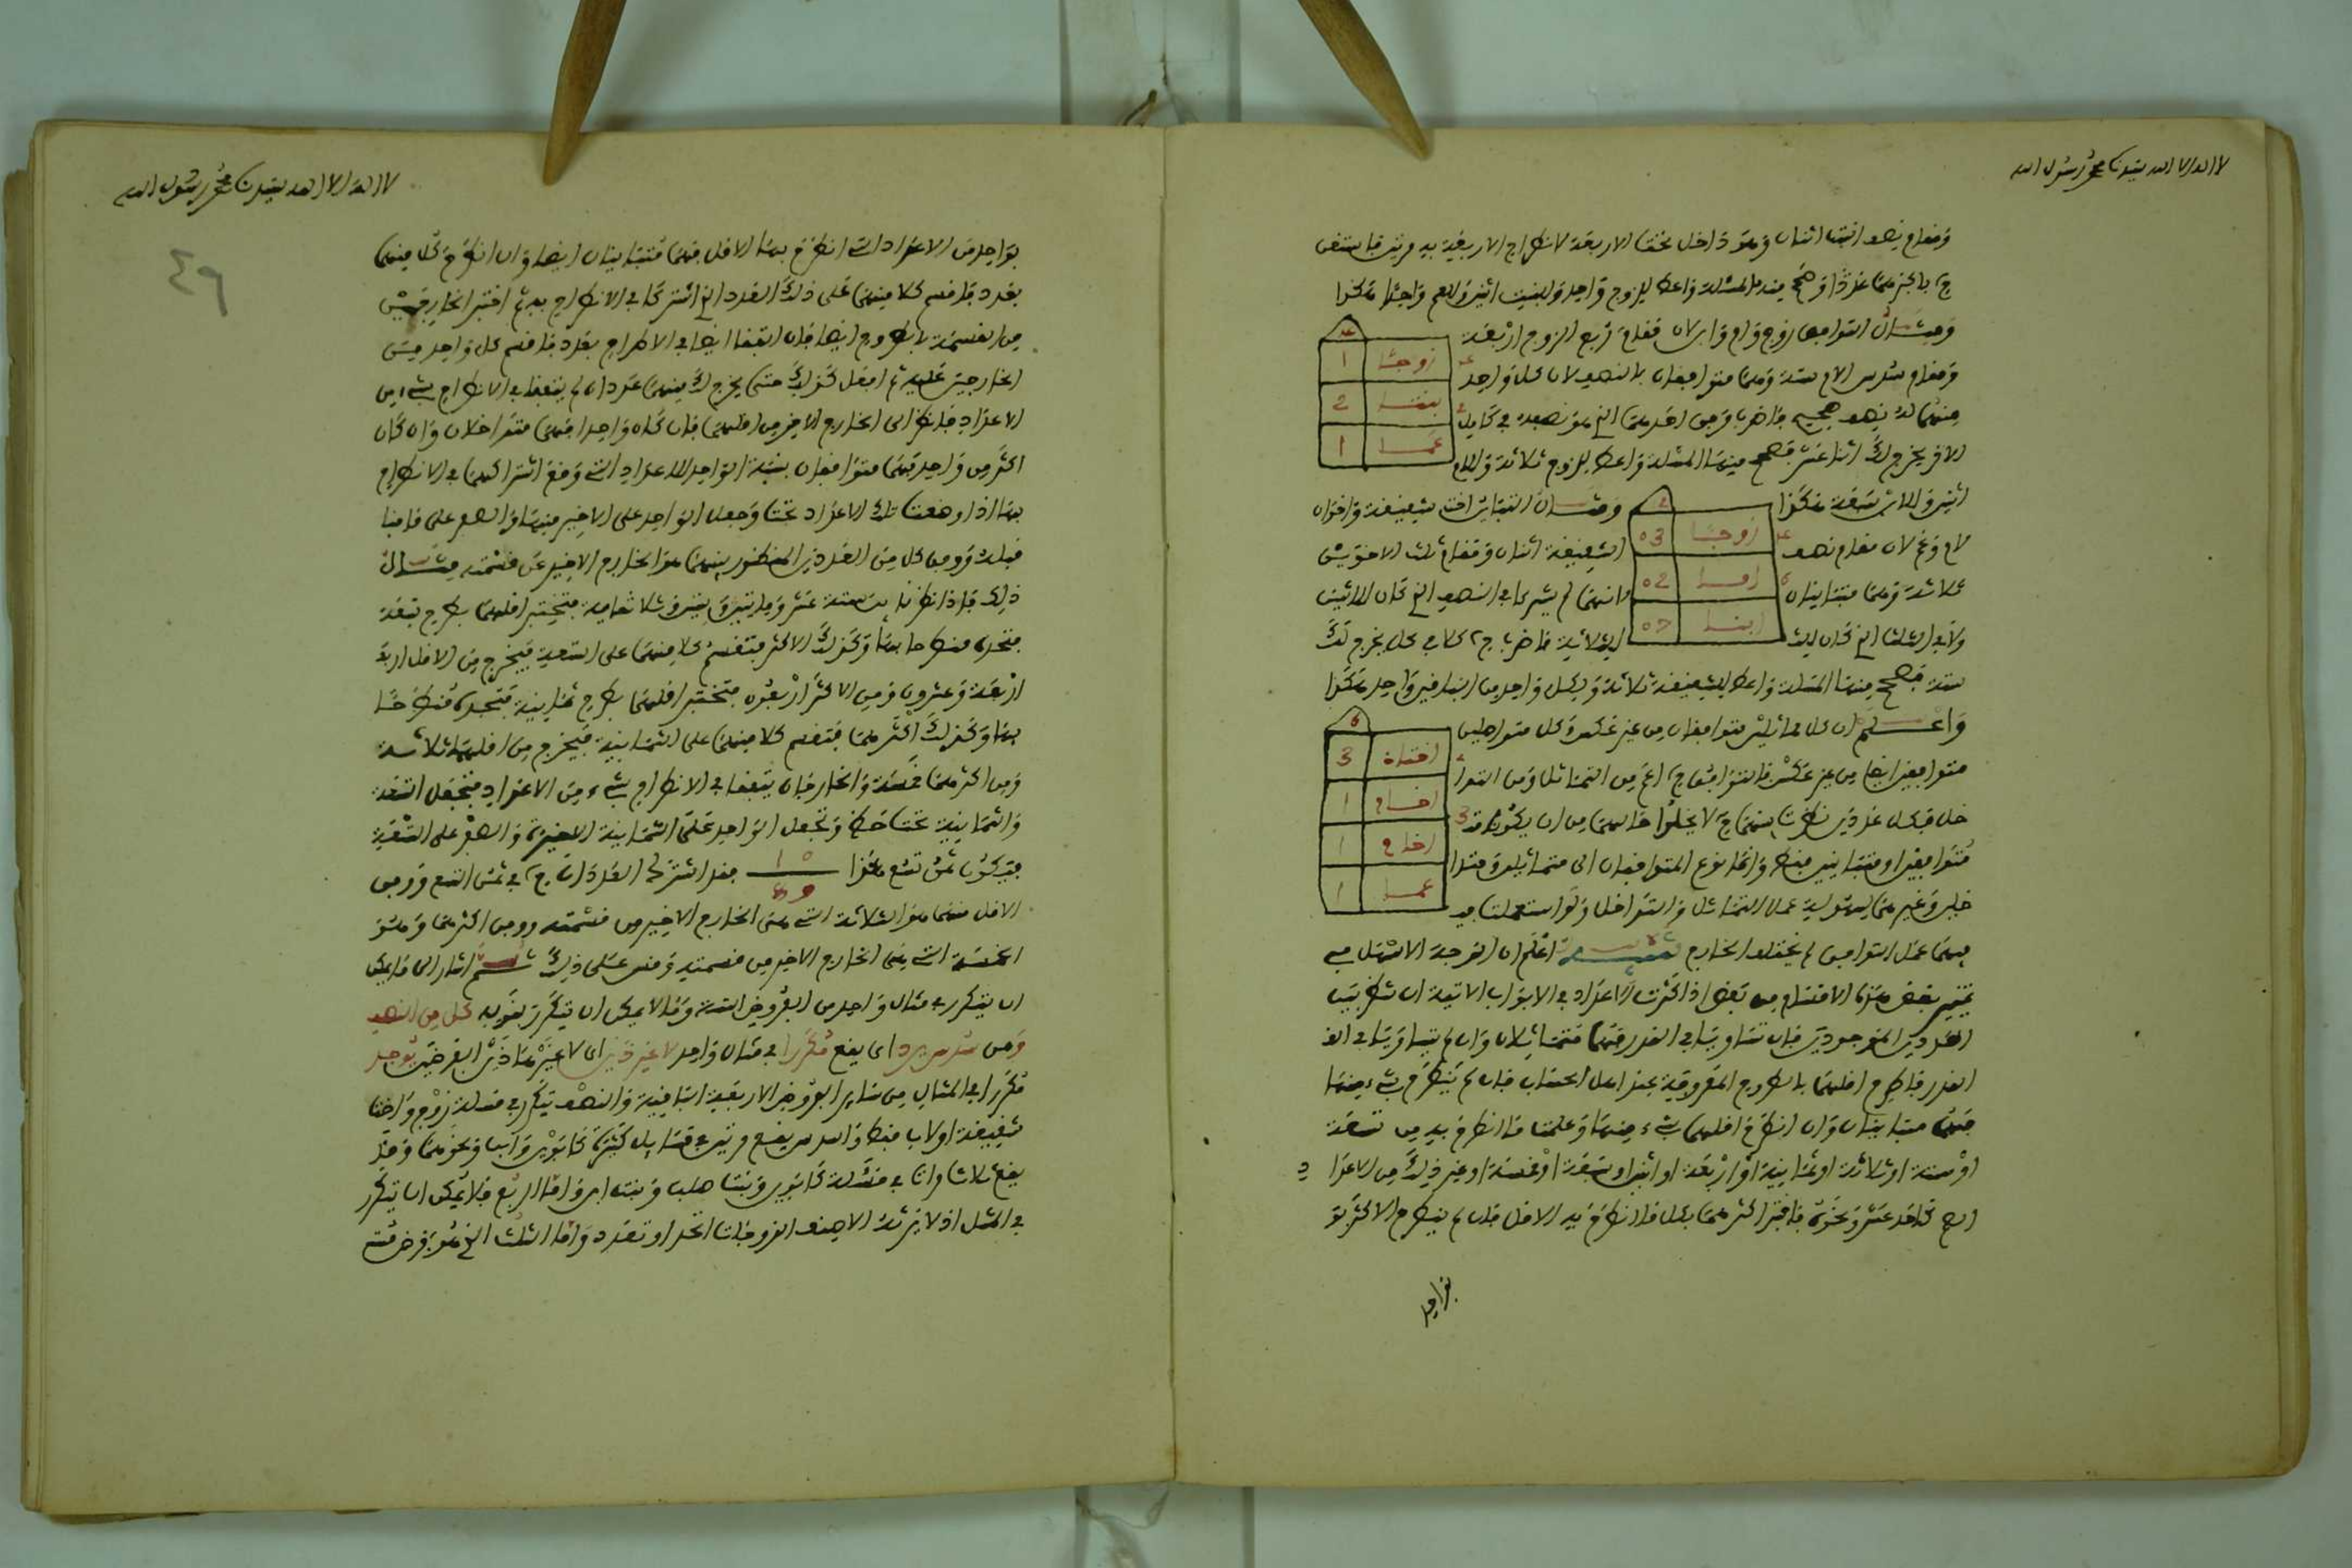 لا اله الا الله سيدنا محمد رسول الله
ومقام نصف البنت اثنان وهو داخل تحت الاربعة لانطراح الاربعة به مرتين فاستغن
عددا وصحح منه المسئلة واعط للزوج واحد وللبنت اثنين وللعم واحدا هكذا
ومثال التوافق زوج وام وابن لان مقام ربع الزوج اربعة
ومقام سدس الام ستة وهما متوافقان بالنصف لان لكل واحد
منهما له نصف صحيح فاضرب وفق احدهما الذي هو نصفه في كامل
الاخر يخرج لك اثنا عشر فصحح منها المسئلة واعط للزوج ثلاثة وللام
اثنين وللابن سبعة هكذا
ومثال التباين اخت شقيقة واخوان
لام وعم لان مقام نصف
الشقيقة اثنان ومقام ثلث الاخوين
ثلاثة وهما متباينان
لانهما لم يشتركا في النصف الذي كان للاثنين
ولا في الثلث الذي كان
للثلاثة فاضرب كلا في كل يخرج لك
ستة فصحح منها المسئلة واعط للشقيقة ثلاثة ولكل واحد من الباقين واحد هكذا
واعلم ان كل متماثلين متوافقان من غير عكس وكل متداخلين
متوافقين ايضا من غير عكس فالتوافق اعم من التماثل ومن التدا
خل فكل عددين نظرت بينهما لا يخلو حالهما من ان يكونا
متوافقين او متباينين فقط وانما نوع المتوافقان الى متماثلين ومتدا
خلين وغيرهما لسهولة عمل التماثل والتداخل ولو استعملت
فيهما عمل التوافق لم يختل الخارج تنبيه اعلم ان الوجه الاسهل في
تمييز بعض هذه الاقسام من بعض اذا كثرت الاعداد في الابواب الاتية ان تنظر بين
العددين الموجودين فان تساويا في القدر فهما متماثلان وان لم يتساويا في
القدر فاطرح اقلهما بالطروح المعروفة عند اهل الحساب فان لم ينطرح بشيء منها
فهما متباينان وان انطرح اقلهما بشيء منها وعلمت ما انطرح به من تسعة
او ستة او ثلاثة او ثمانية او اربعة او اثنين او سبعة او خمسة او غير ذلك من الاعداد
كاحد عشر ونحوه فاختبر اكثرهما بكل ما انطرح به الاقل فان لم ينطرح الاكثر
بواحد
زوجا 1
بنتا 2
عما 1
زوجا 03
اما 02
ابنا 07
اختاه 3
اخام 1
اخام 1
عما 1
لا اله الا الله سيدنا محمد رسول الله
٤٩
بواحد من الاعداد التي انطرح بها الاقل فهما متباينان ايضا وان انطرح كل منهما
بعدد فاقسم كلا منهما على ذلك العدد الذي اشتركا في الانطراح به ثم اختبر الخارجين
من القسمة بالطروح ايضا فان اتفقا ايضا في الانطراح بعدد فاقسم كل واحد من
الخارجين عليه ثم افعل كذلك حتى يخرج لك منهما عددان لم يتفقا في الانطراح بشيء من
الاعداد فانظر الى الخارج الاخير من اقلهما فان كان واحدا فهما متداخلان وان كان
اكثر من واحد فهما متوافقان بنسبة الواحد للاعداد التي وقع اشتراكهما في الانطراح
بها اذا وضعت تلك الاعداد تحت وجعل الواحد على الاخير منها والصفر على ما
قبله ووفق كل من العددين المنظور بينهما هو الخارج الاخير عن قسمته مثال
ذلك فاذا نظرنا بين ستة عشر ومايتين وبين وثلاثماية فتختبر اقلهما بطرح تسعة
فتجده منطرحا بها وكذلك الاكثر فتقسم كلا منهما على التسعة فيخرج من الاقل
اربعة وعشرون ومن الاكثر اربعون فتختبر اقلهما بطرح ثمانية فتجده منطرحا
بها وكذلك اكثرهما فتقسم كلا منهما على الثمانية فيخرج من اقلهما ثلاثة
ومن اكثرهما خمسة والخارجان لم يتفقا في الانطراح بشيء من الاعداد فتجعل التسعة
والثمانية تحت خط وتجعل الواحد على الثمانية الاخيرة والصفر على التسعة
فيكون ثمن تسع هكذا فقد اشترك العددان في ثمن التسع ووفق
الاقل منهما هو الثلاثة التي هي الخارج الاخير من قسمته ووفق اكثرهما هو
الخمسة التي هي الخارج الاخير من قسمته وقس على ذلك ثم اشار الى ما يمكن
ان يتكرر في مثال واحد من الفروض الستة وما لا يمكن ان يتكرر بقوله كل من النصف
ومن سدس يرد اي يقع مكررا في مثال واحد لا غير ذين اي لا غير هذين الفرضين يوجد
مكررا في المثال من سائر الفروض الاربعة الباقية والنصف يتكرر في مسئلة زوج واخت
شقيقة او لاب فقط والسدس يقع مرتين في مسايل كثيرة كابوين وابن ونحوهما وقد
يقع ثلاث مرات في مسئلة كابوين وبنت صلب وبنت ابن واما الربع فلا يمكن ان يتكرر
في المثل اذ لا يرثه الا صنف الزوجات اتحد او تعدد واما الثلث الذي هو فرض